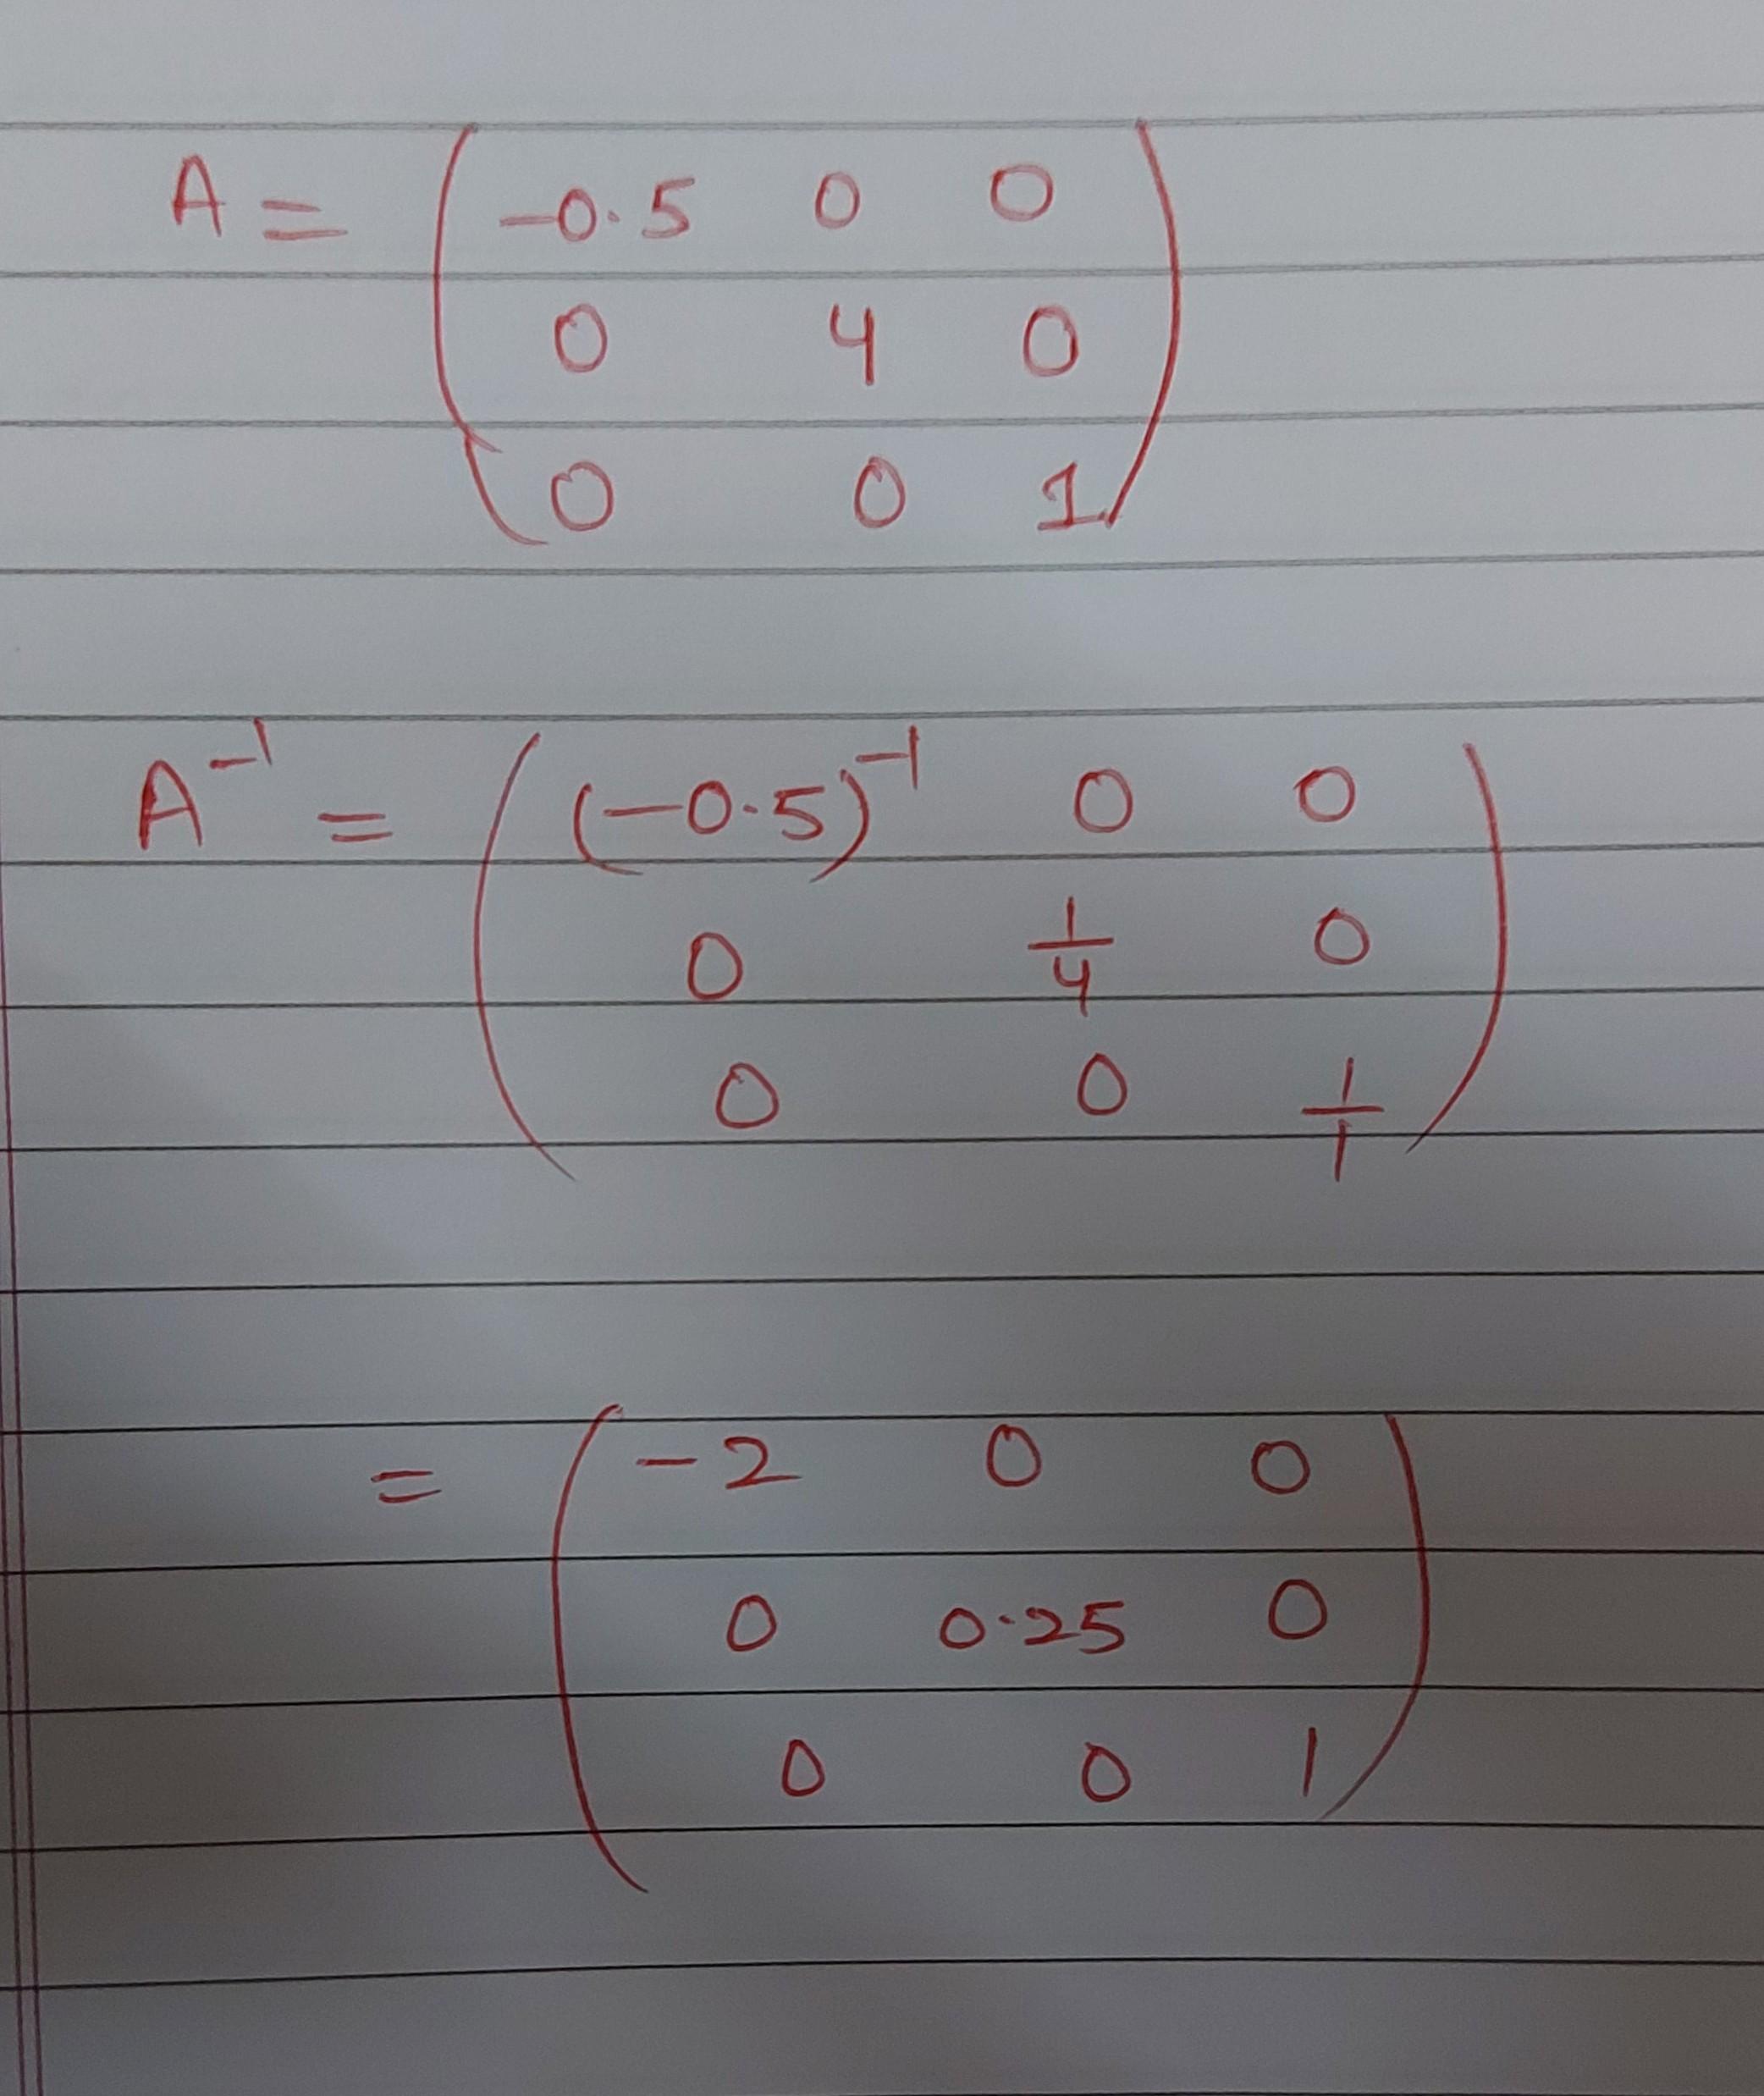 A = ( -0.5 0 0
0 4 0
0 0 1 )
A⁻¹ = ( (-0.5)⁻¹ 0 0
0 1/4 0
0 0 1/1 )
= ( -2 0 0
0 0.25 0
0 0 1 )